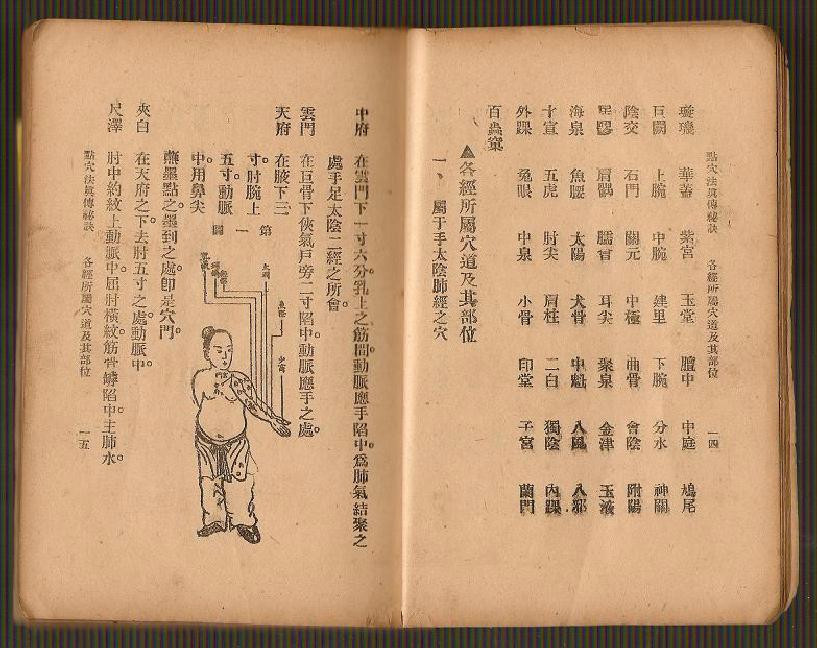 點穴法眞傳秘訣　各經所屬穴道及其部位　一四
璇璣　華蓋　紫宮　玉堂　膻中　中庭　鳩尾
巨闕　上腕　中腕　建里　下腕　分水　神闕
陰交　石門　關元　中極　曲骨　會陰　附陽
居髎　肩髃　臑會　耳尖　聚泉　金津　玉液
海泉　魚腰　太陽　大骨　中魁　八風　八邪
十宣　五虎　肘尖　肩柱　二白　獨陰　內踝
外踝　兔眼　中泉　小骨　印堂　子宮　蘭門
百蟲窠
▲各經所屬穴道及其部位
一、屬于手太陰肺經之穴
中府　在雲門下一寸六分。乳上之筋間。動脈應手陷中。爲肺氣結聚之
處。手足太陰二經之所會。
雲門　在巨骨下。俠氣戶旁二寸陷中。動脈應手之處。
天府　在腋下三
寸。肘腕上
五寸。動脈
中。用鼻尖
蘸墨點之。墨到之處。卽是穴門。
第一圖
太淵
魚際
少商
夾白　在天府之下。去肘五寸之處。動脈中。
尺澤　肘中約紋上。動脈中。屈肘橫紋。筋骨罅陷中。主肺水。
點穴法眞傳秘訣　各經所屬穴道及其部位　一五